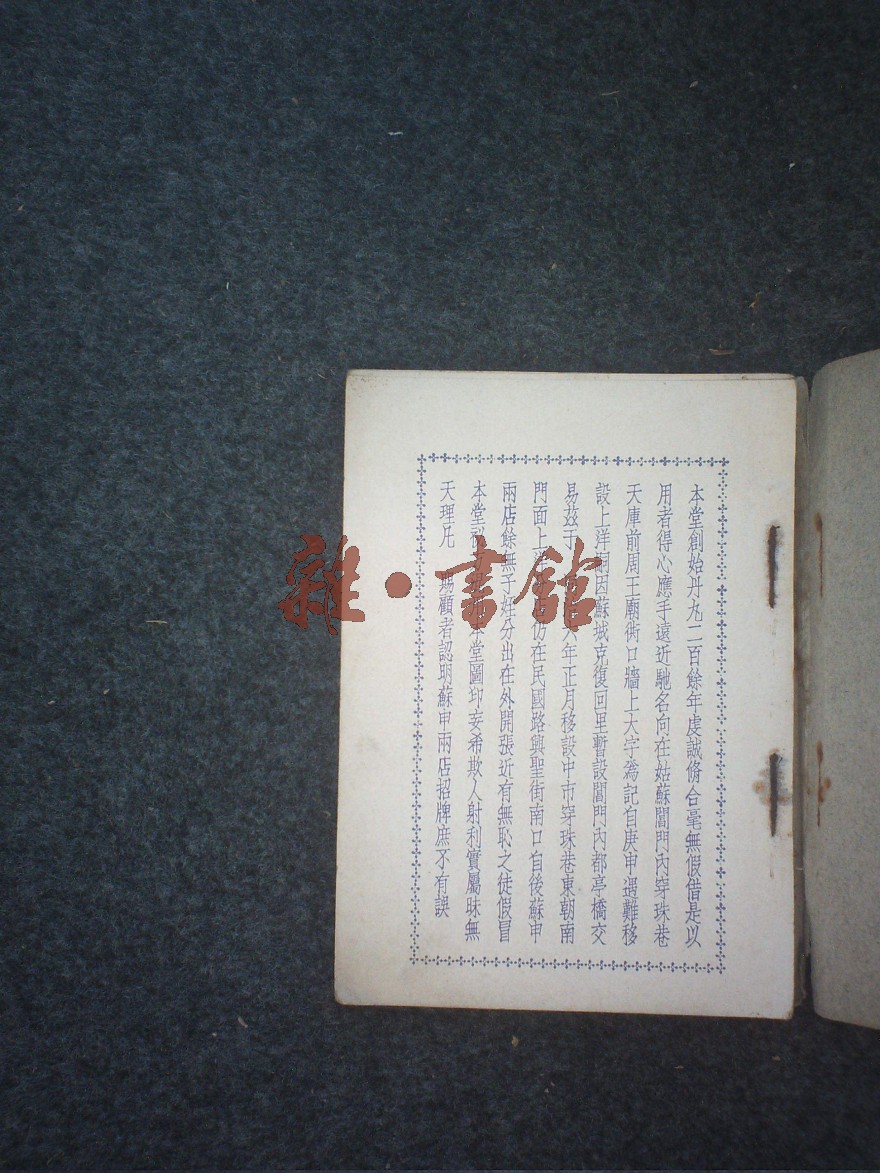 本堂創始丹丸二百餘年虔誠脩合毫無假借是以
用者得心應手遠近馳名向在姑蘇閶門內穿珠巷
天庫前周王廟衖口牆上大字為記自庚申遇難移
設上洋 因蘇城克復回里暫設閶門內都亭橋交
易茲于 年正月移設中市穿珠巷東朝南
門面上 仿在民國路興聖街南口自後蘇申
兩店餘無子姪分出在外開張近有無恥之徒假冒
本堂 本堂圖印妄希欺人射利實屬昧無
天理凡 賜顧者認明蘇申兩店招牌庶不有誤
雜·書館